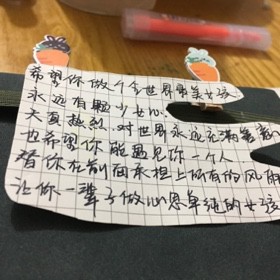 希望你做个全世界最美女孩
永远有颗少女心
天真热烈 对世界永远充满善意
也希望你能遇见你一个人
替你在前面承担上所有的风雨
让你一辈子做心思单纯的女孩